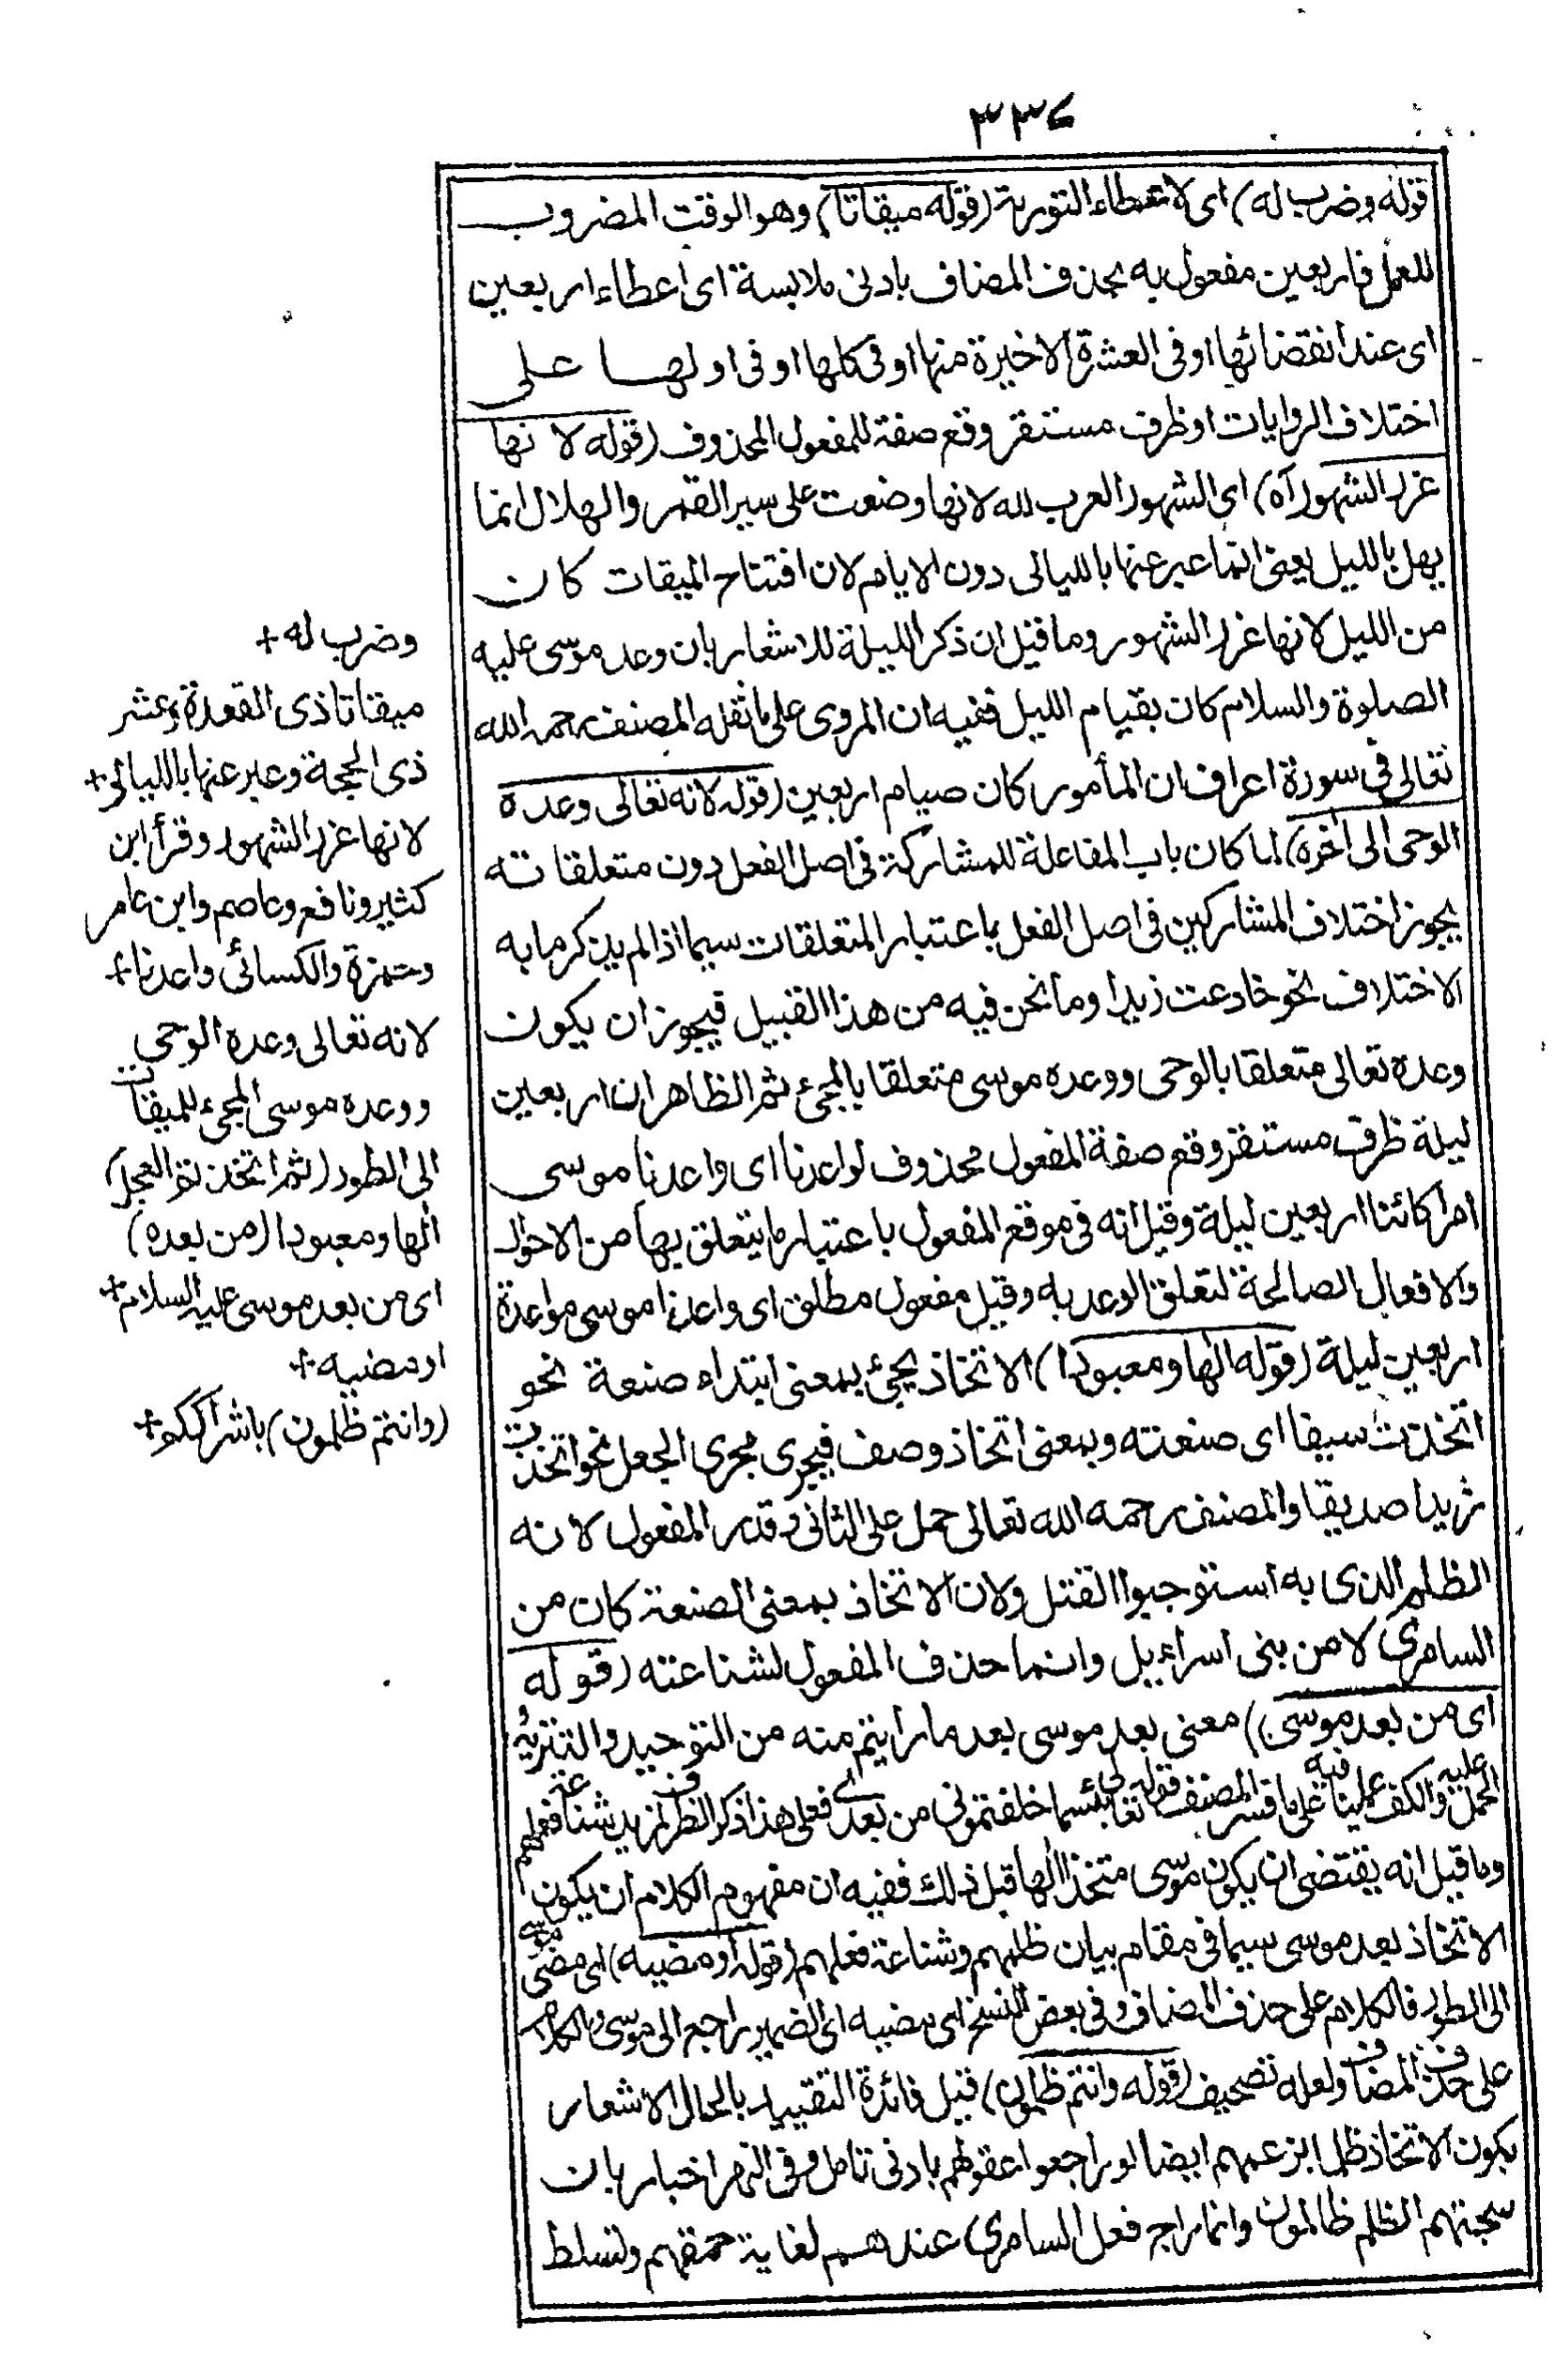 ٣٣٤
قوله وضرب له) اى لاعطاء التورية (قوله ميقاتا) وهو الوقت المضروب
للعمل فاربعين مفعول به بحذف المضاف بادنى ملابسة اى اعطاء اربعين
اى عند انقضائها او فى العشرة الاخيرة منها او فى كلها او فى اولها على
اختلاف الروايات او ظرف مستقر وقع صفة للمفعول المحذوف (قوله لانها
غرر الشهور آه) اى الشهور العرب لله لانها وضعت على سير القمر والهلال انما
يهل بالليل يعنى انما عبر عنها بالليالى دون الايام لان افتتاح الميقات كان
من الليل لانها غرر الشهور وما قيل ان ذكر الليلة للاشعار بان وعد موسى عليه
الصلوة والسلام كان بقيام الليل ففيه ان المروى على ما نقله المصنف رحمه الله
تعالى فى سورة اعراف ان المأمور كان صيام اربعين (قوله لانه تعالى وعده
الوحى الى آخره) لما كان باب المفاعلة للمشاركة فى اصل الفعل دون متعلقاته
يجوز اختلاف المشاركين فى اصل الفعل باعتبار المتعلقات سيما اذا لم يذكر ما به
الاختلاف نحو خادعت زيدا وما نحن فيه من هذا القبيل فيجوز ان يكون
وعده تعالى متعلقا بالوحى ووعده موسى متعلقا بالمجئ ثم الظاهر ان اربعين
ليلة ظرف مستقر وقع صفة المفعول محذوف لواعدنا اى واعدنا موسى
امرا كائنا اربعين ليلة وقيل انه فى موقع المفعول باعتبار ما يتعلق بها من الاحوال
والافعال الصالحة لتعلق الوعد به وقيل مفعول مطلق اى واعدنا موسى مواعدة
اربعين ليلة (قوله الها ومعبودا) الاتخاذ يجئ بمعنى ابتداء صنعة نحو
اتخذت سيفا اى صنعته وبمعنى اتخاذ وصف فيجرى مجرى الجعل نحو اتخذت
زيدا صديقا والمصنف رحمه الله تعالى حمل على الثانى وقدر المفعول لانه
الظلم الذى به استوجبوا القتل ولان الاتخاذ بمعنى الصنعة كان من
السامرى لا من بنى اسراءيل وانما حذف المفعول لشناعته (قوله
اى من بعد موسى) معنى بعد موسى بعد ما رايتم منه من التوحيد والتنزيه
الحمل عليه والكف عملينا فيه على ما فسر المصنف قوله تعالى بئسما خلفتمونى من بعدى فعلى هذا ذكر الظرف لمزيد شناعة فعلهم
وما قيل انه يقتضى ان يكون موسى متخذا الها قبل ذلك ففيه ان مفهوم الكلام ان يكون
الاتخاذ بعد موسى سيما فى مقام بيان ظلمهم وشناعة فعلهم (قوله او مضيه) اى مضى موسى
الى الطور فالكلام على حذف المضاف وفى بعض النسخ اى مضيه اى الضمير راجع الى موسى والكلام
على حذف المضاف ولعله تصحيف (قوله وانتم ظالمون) قيل فائدة التقييد بالحال الاشعار
بكون الاتخاذ ظلما بزعمهم ايضا لو راجعوا عقولهم بادنى تامل وفى النهر اخبار بان
سجيتهم الظلم ظالمون وانما راج فعل السامرى عندهم لغاية حمقهم وتسلط
وضرب له +
ميقاتا ذى القعدة وعشر
ذى الحجة وعبر عنها بالليالى +
لانها غرر الشهور وقرأ ابن
كثير ونافع وعاصم وابن عامر
وحمزة والكسائى واعدنا +
لانه تعالى وعده الوحى
ووعده موسى المجئ للميقات
الى الطور (ثم اتخذتم العجل)
الها ومعبودا (من بعده)
اى من بعد موسى عليه السلام +
او مضيه +
(وانتم ظلمون) باشراككم +